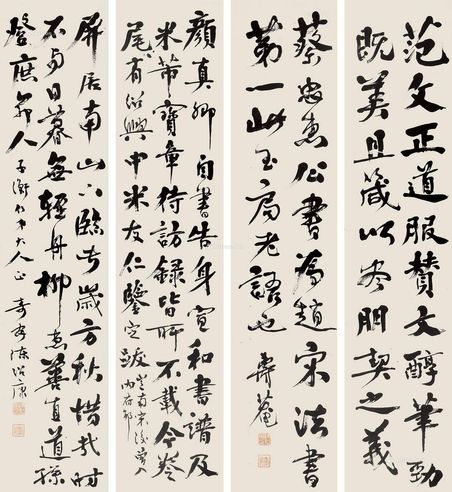 范文正道服贊文醇筆勁
既美且箴以盡朋契之義
蔡忠惠公書為趙宋法書
第一此玉局老語也
顏真卿自書告身宣和書譜及
米芾寶章待訪錄皆所不載今卷
尾有紹興中米友仁鑒定跋
內府耶
屏居南山下臨此歲方秋惜哉時
不與日暮無輕舟柳惠善直道孫
登庶知人 子衡仁兄大人正